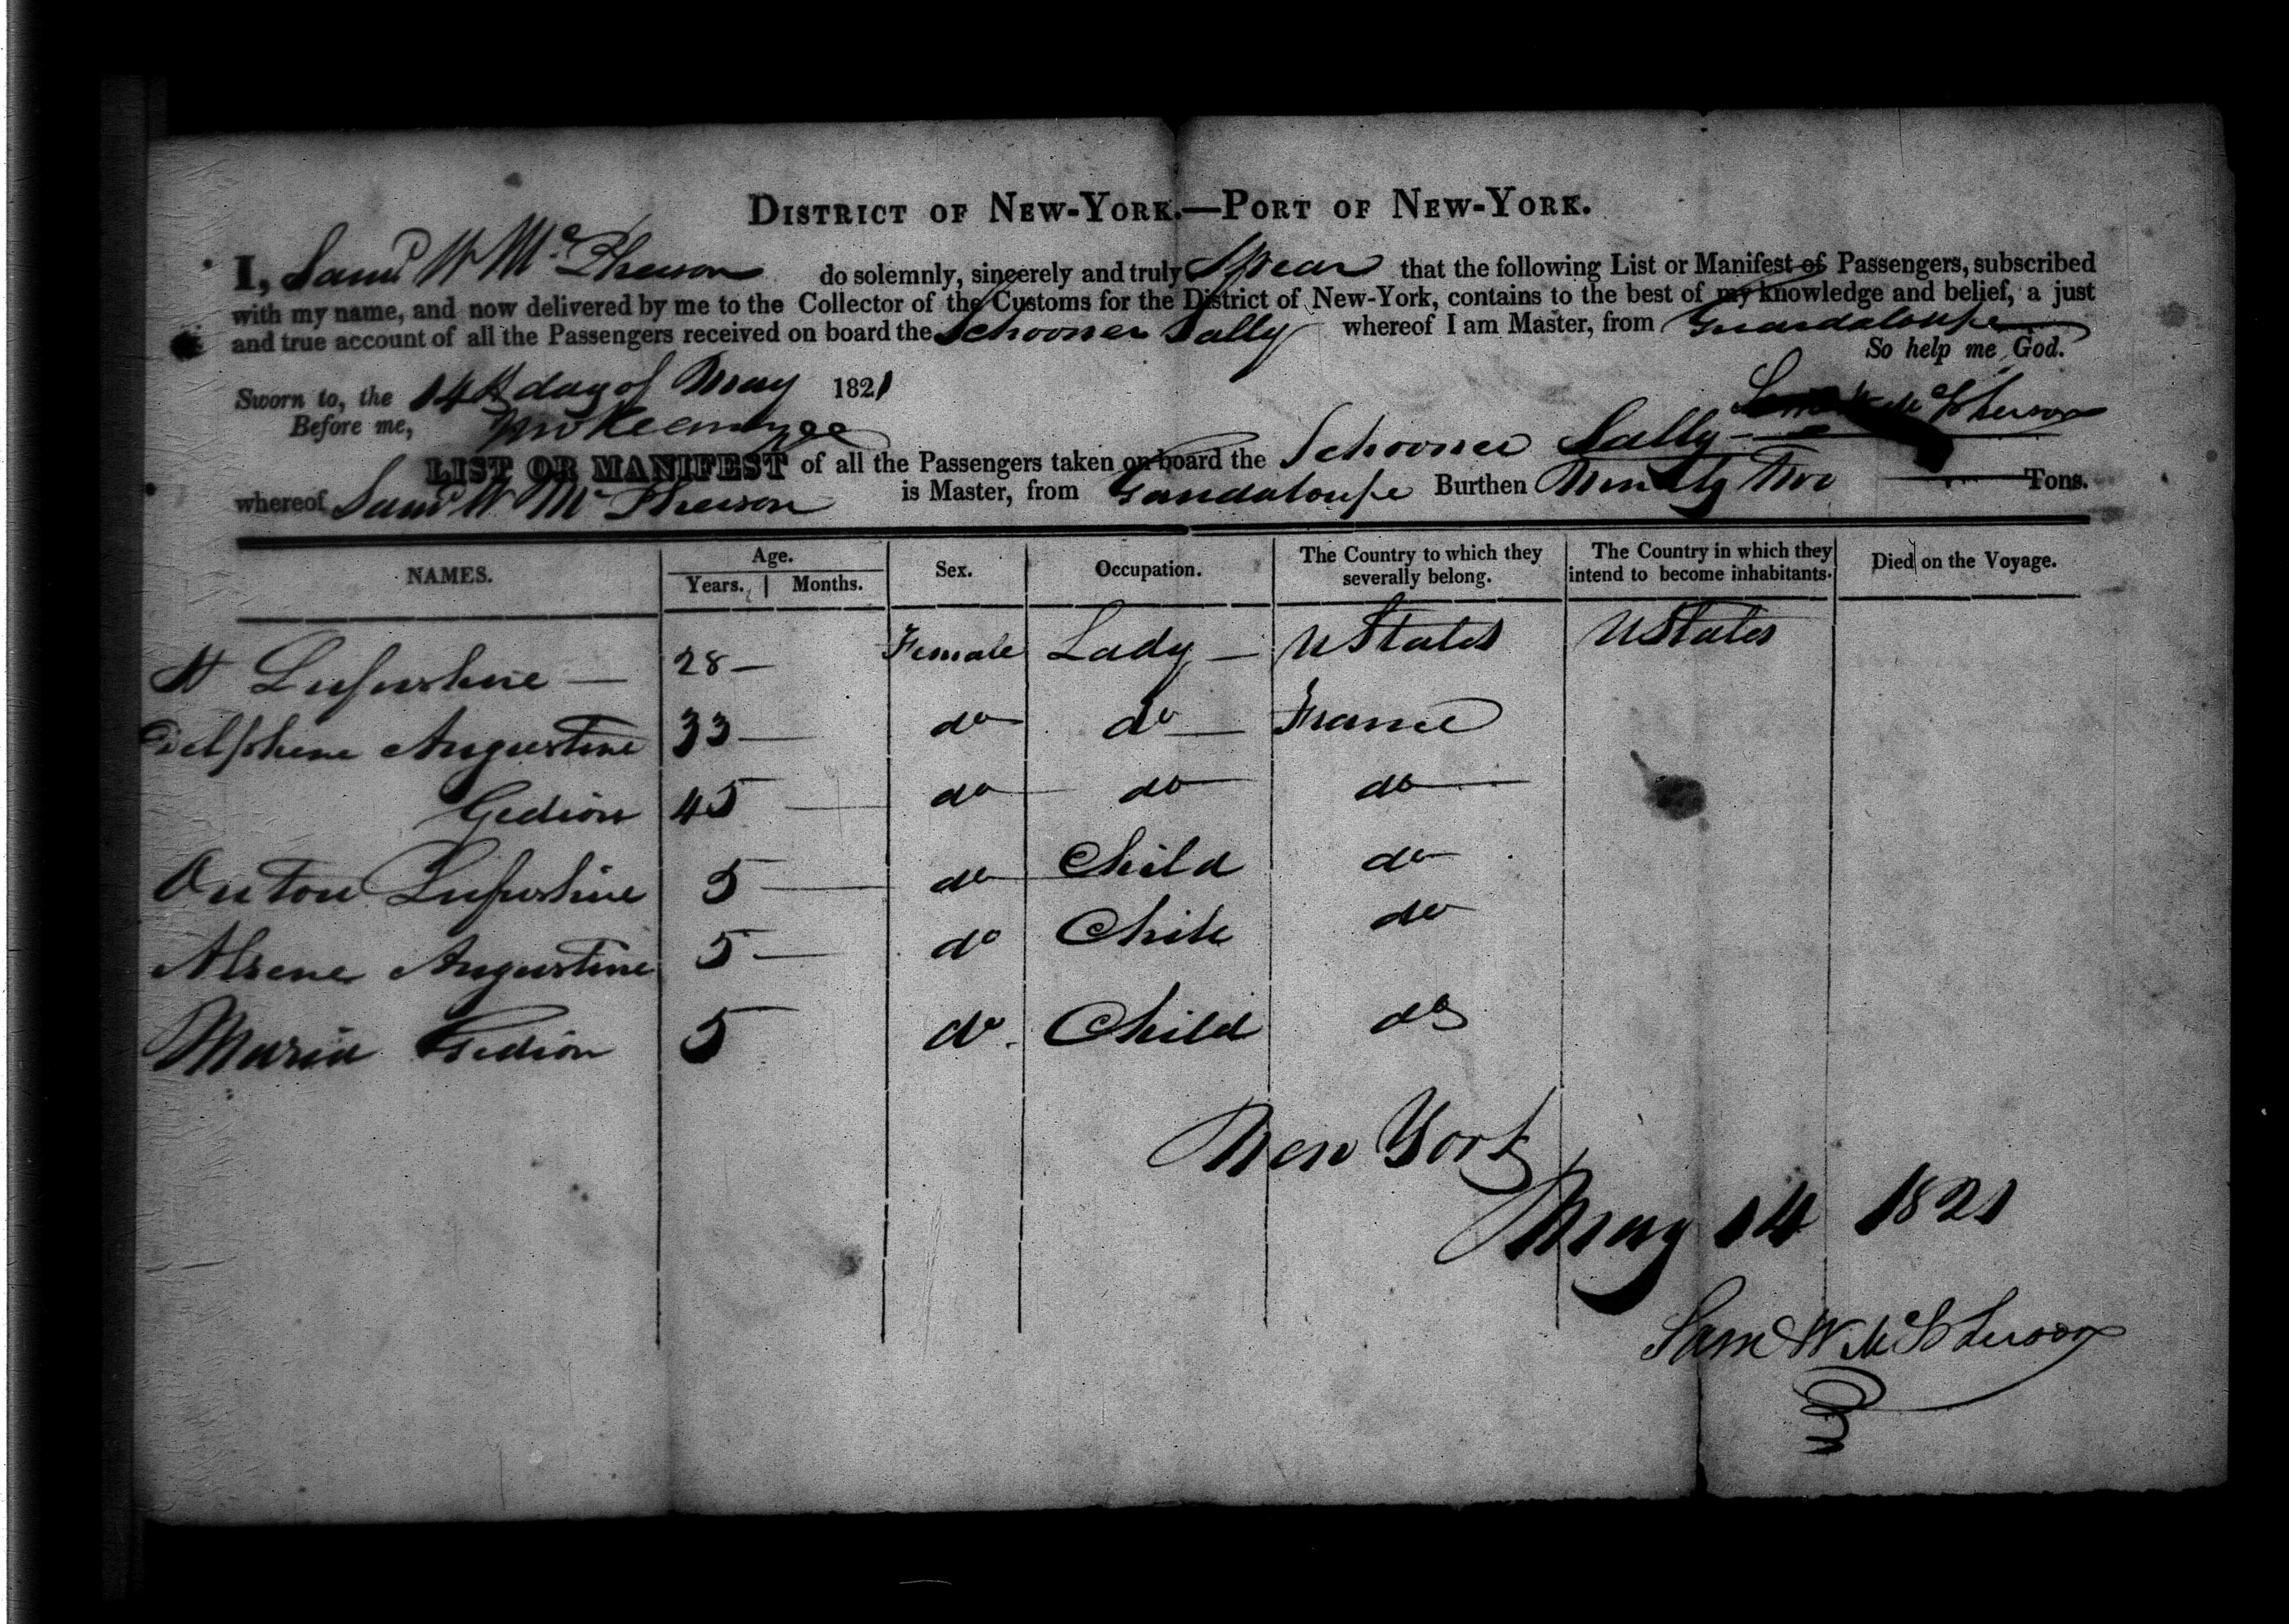 DISTRICT OF NEW-YORK.—PORT OF NEW-YORK.
I, Saml W McPherson do solemnly, sincerely and truly Swear that the following List or Manifest of Passengers, subscribed
with my name, and now delivered by me to the Collector of the Customs for the District of New-York, contains to the best of my knowledge and belief, a just
and true account of all the Passengers received on board the Schooner Sally whereof I am Master, from Guardaloupe
So help me God.
Sworn to, the 14th day of May 1821
Sam W McPherson
Before me,
LIST OR MANIFEST of all the Passengers taken on board the Schooner Sally
whereof Saml W McPherson is Master, from Gaudaloupe Burthen Ninety Two Tons.
NAMES. Age. Years. Months. Sex. Occupation. The Country to which they severally belong. The Country in which they intend to become inhabitants. Died on the Voyage.
28 — Female Lady — UStates UStates
Delphene Augustine 33 — do do — France
Gedion 45 — do do do
5 — do Child do
Alsene Augustine 5 — do Chile do
Maria Gedion 5 do Child do
New York
May 14 1821
Sam W McPherson